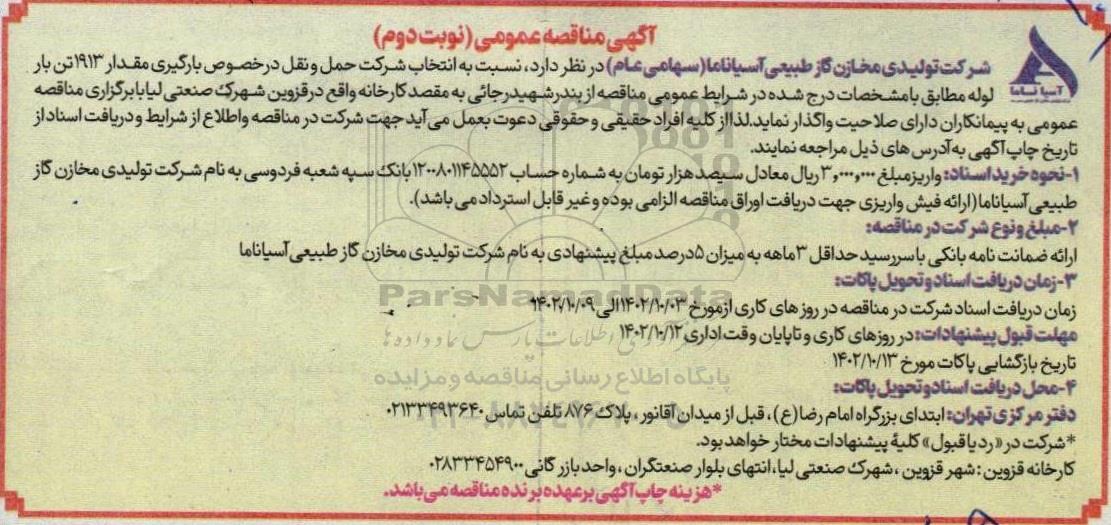 آگهی مناقصه عمومی (نوبت دوم)
آسیا ناما
شرکت تولیدی مخازن گاز طبیعی آسیاناما (سهامی عام) در نظر دارد، نسبت به انتخاب شرکت حمل و نقل در خصوص بارگیری مقدار ۱۹۱۳ تن بار
لوله مطابق با مشخصات درج شده در شرایط عمومی مناقصه از بندر شهید رجائی به مقصد کارخانه واقع در قزوین شهرک صنعتی لیا با برگزاری مناقصه
عمومی به پیمانکاران دارای صلاحیت واگذار نماید. لذا از کلیه افراد حقیقی و حقوقی دعوت بعمل می آید جهت شرکت در مناقصه و اطلاع از شرایط و دریافت اسناد از
تاریخ چاپ آگهی به آدرس های ذیل مراجعه نمایند.
۱- نحوه خرید اسناد: واریز مبلغ ۳,۰۰۰,۰۰۰ ریال معادل سیصد هزار تومان به شماره حساب ۱۲۰۰۸۰۱۱۴۵۵۵۲ بانک سپه شعبه فردوسی به نام شرکت تولیدی مخازن گاز
طبیعی آسیاناما (ارائه فیش واریزی جهت دریافت اوراق مناقصه الزامی بوده و غیر قابل استرداد می باشد).
۲- مبلغ و نوع شرکت در مناقصه:
ارائه ضمانت نامه بانکی با سررسید حداقل ۳ ماهه به میزان ۵ درصد مبلغ پیشنهادی به نام شرکت تولیدی مخازن گاز طبیعی آسیاناما
۳- زمان دریافت اسناد و تحویل پاکات:
ParsNamadData
زمان دریافت اسناد شرکت در مناقصه در روزهای کاری از مورخ ۱۴۰۲/۱۰/۰۳ الی ۱۴۰۲/۱۰/۰۹
مهلت قبول پیشنهادات: در روزهای کاری و تا پایان وقت اداری ۱۴۰۲/۱۰/۱۲
تاریخ بازگشایی پاکات مورخ ۱۴۰۲/۱۰/۱۳
پایگاه اطلاع رسانی مناقصه و مزایده
۴- محل دریافت اسناد و تحویل پاکات:
دفتر مرکزی تهران: ابتدای بزرگراه امام رضا (ع)، قبل از میدان آقانور، پلاک ۸۷۶ تلفن تماس ۰۲۱۳۳۴۹۳۶۴۰
*شرکت در «رد یا قبول» کلیهٔ پیشنهادات مختار خواهد بود.
کارخانه قزوین: شهر قزوین، شهرک صنعتی لیا، انتهای بلوار صنعتگران، واحد بازرگانی ۰۲۸۳۳۴۵۴۹۰۰
*هزینه چاپ آگهی بر عهده برنده مناقصه می باشد.